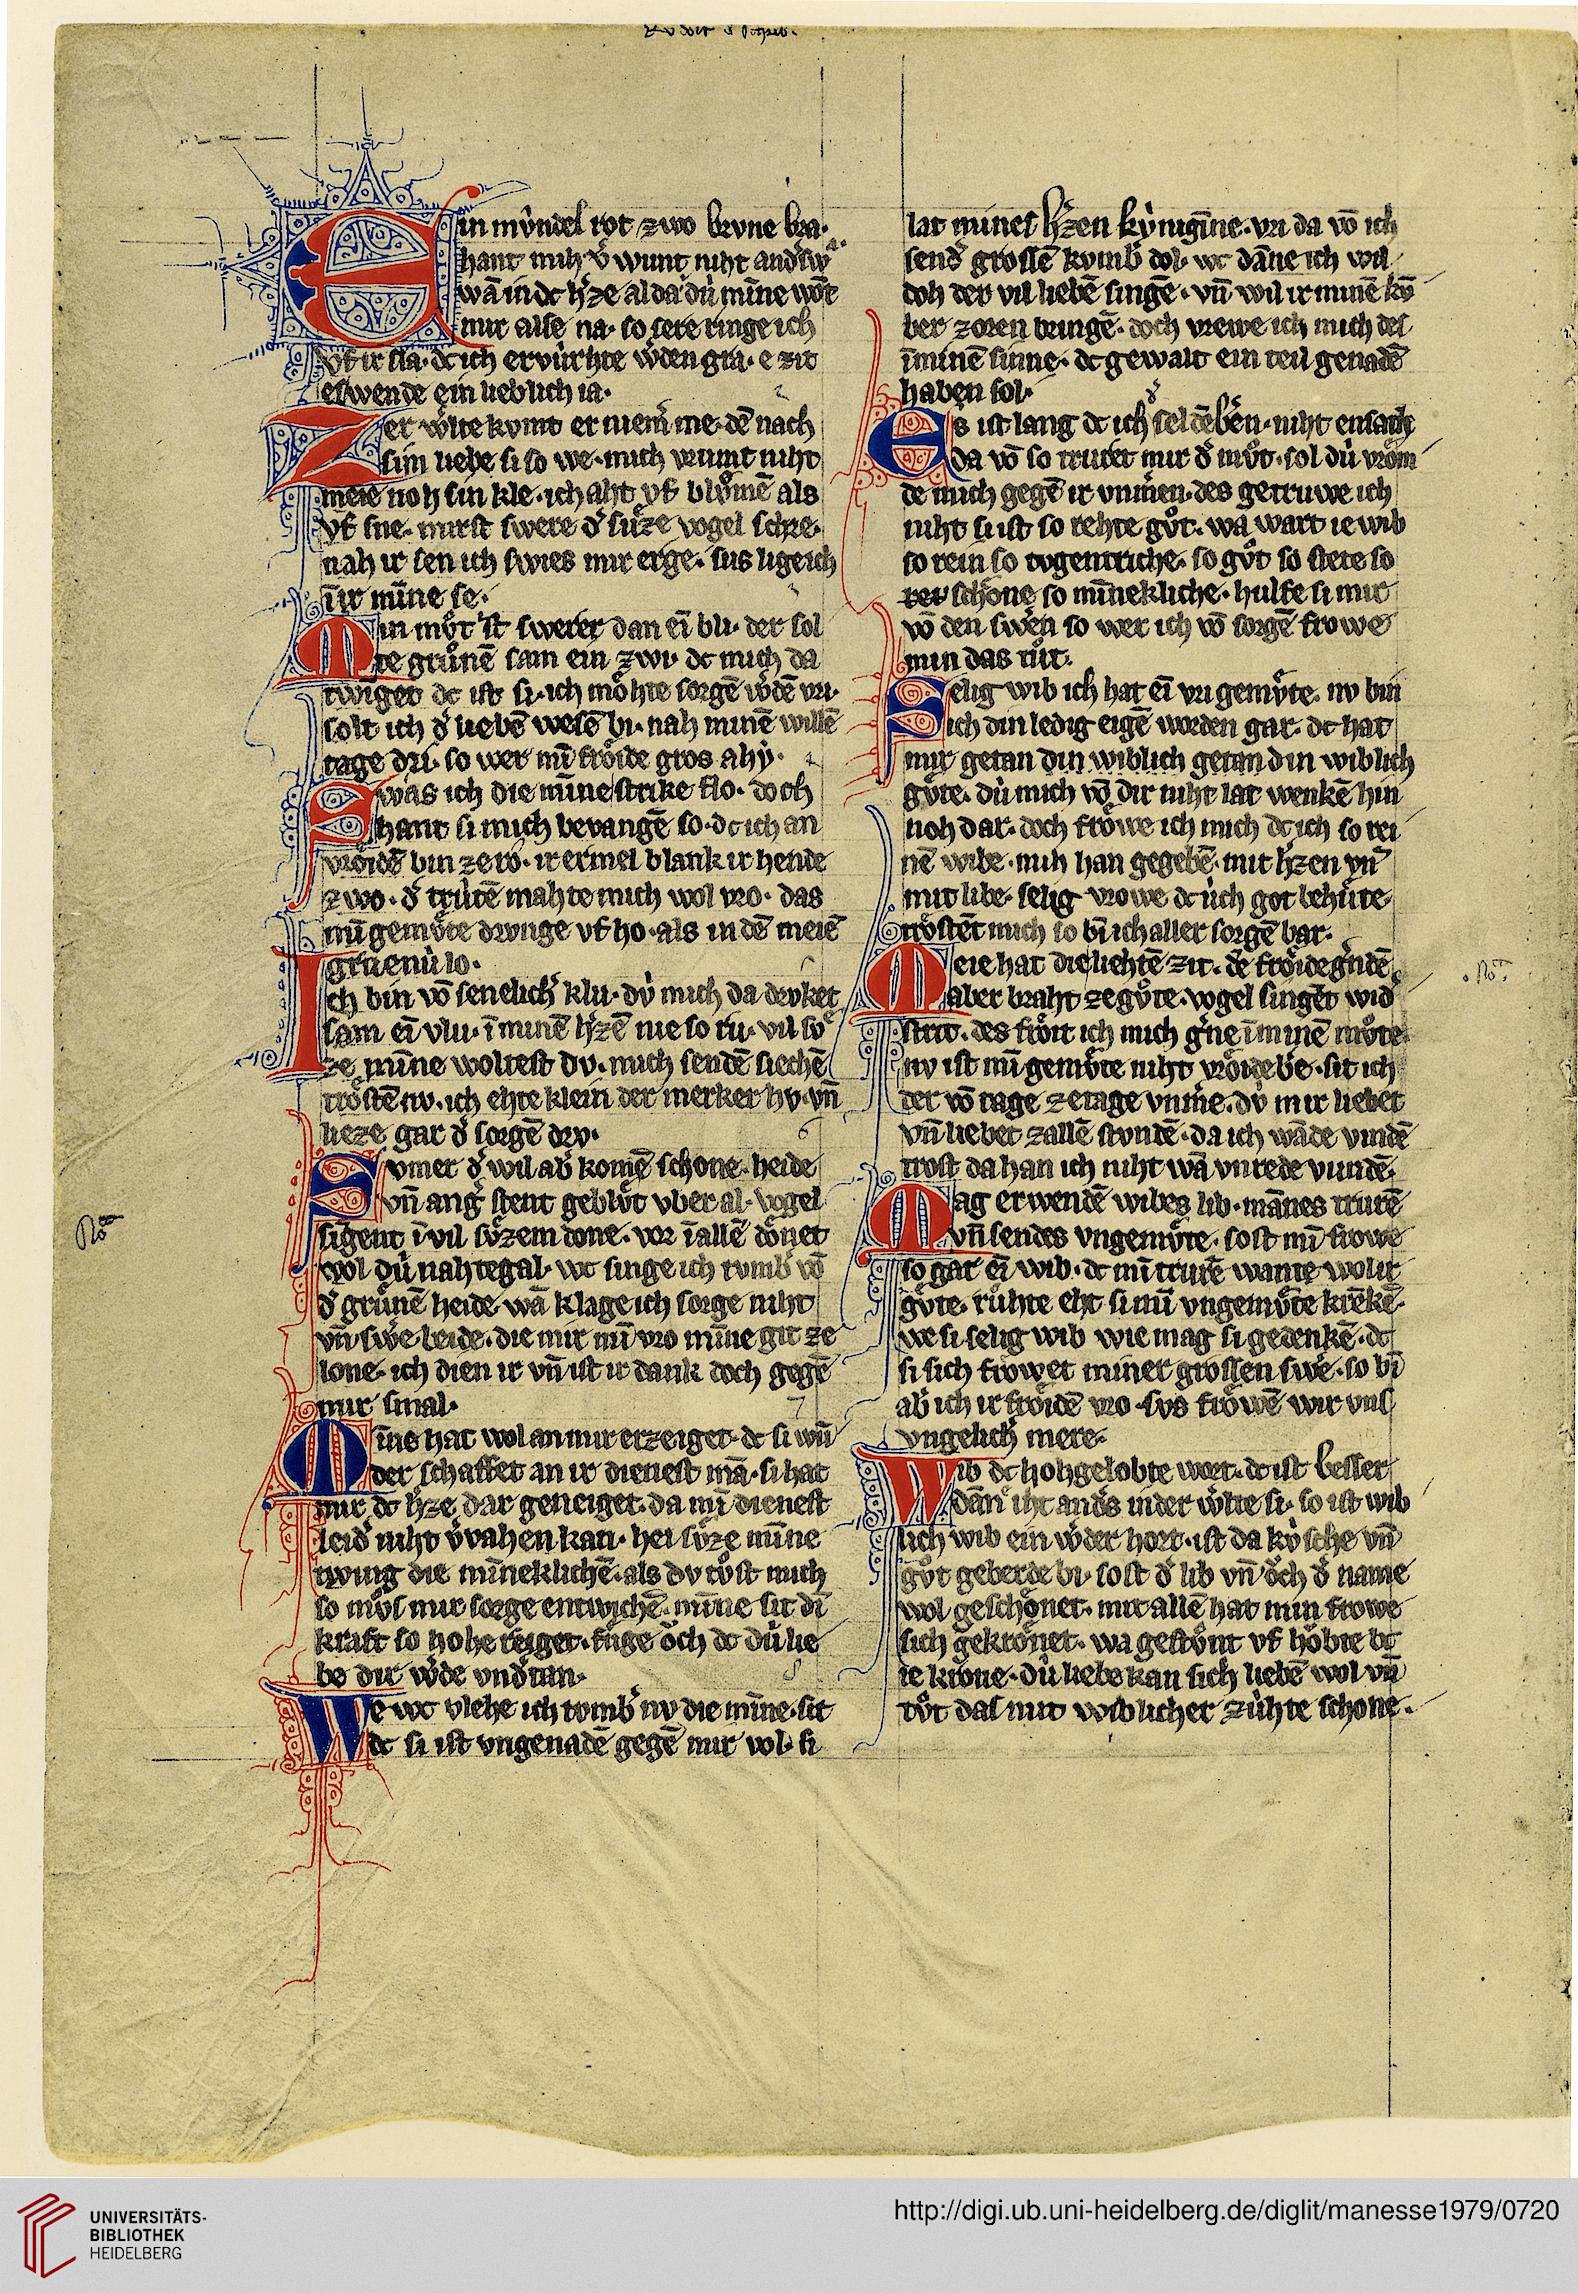 Ein mv̍ndel rot zwo brvne bra·
hant mih v̾ wunt niht and̾swa·
wā in dc h̾ze al da dù mı̄ne wōt
mir alse na· so sere ringe ich
vf ir sla· dc ich ervùrhte w̾den gra· e zit
eswende ein lieblich ia·
Zer w̾lte kvmt er niem̾ me· dē nach
sim liebe si so we· mich vrùmt niht
meie noh sin kle· ich aht vf blv̊mē als
vf sne· mirst swere d̾ sùze vogel schre·
nah ir sen ich swies mir erge· sus lige ich
ı̄ ir mı̄ne se·
Min mv̊t ist swerer dan eı̄ bli· der sol
te grv̊nē sam ein zwi· dc mich da
twinget dc ist si· ich mo̍hte sorgē w̾dē vri·
solt ich d̾ liebē wesē bi· nah minē willē
tage dri· so wer mı̄ frȯide gros ahy̍·
Swas ich die mı̄ne strike flo· doch
hant si mich bevangē so· dc ich an
vrȯidē bin ze ro̍· ir ermel blank ir hende
zwo· d̾ trùtē mahte mich wol vro· das
mı̄ gemv̊te drvnge vf ho· als in dē meiē
grùenù lo·
Ich bin vō senelich̾ klu· dv̍ mich da drvket
sam eı̄ vlu· ı̄ minē h̾zē nie so ru· vil sv̊
ze mı̄ne woltest dv· mich sendē siechē
trȯstē nv· ich ehte klein der merker hv· vn̄
lieze gar d̾ sorgē drv·
Svmer d̾ wil ab̾ komē schone· heide
vn̄ ang̾ stent geblv̊t vber al· vogel
sı̄gent ı̄ vil sv̊zem done· vor ı̄ allē dȯnet
wol dù nahtegal· wc singe ich tvmb̾ vō
d̾ grv̊nē heide· wā klage ich sorge niht
vn̄ sw̾e beide· die mir mı̄ vro mı̄ne git ze
lone· ich dien ir vn̄ ist ir dank doch gegē
mir smal·
Mı̄ne hat wol an mir erzeiget· dc si wū
der schaffet an ir dienest mā· si hat
mir dc h̾ze dar geneiget· da mı̄ dienest
leid̾ niht v̾vahen kan· hei sv̊ze mı̄ne
twing die mı̄neklichē· als dv tv̊st mich
so mv̊s mir sorge entwichē· mı̄ne sit dı̄
kraft so hohe reiget· fùge ȯch dc dù lie
be dir w̾de vnd̾tan·
We wc vlehe ich tvmb̾ nv die mı̄ne· sit
dc si ist vngenadē gegē mir vol· si
lat mines h̾zen kv̍nigı̄ne· vri da vō ich
send̾ grossē kvmb̾ dol· wc dāne ich wil
doh der vil liebē singē· vn̄ wil ir minē kv̄
ber zoren bringē· doch vrewe ich mich des
ı̄ minē sinne· dc gewalt ein teil genadē
haben sol·
Es ist lang dc ich sel dēb̾en· niht ensach
da vō so truret mir d̾ mv̊t· sol dù vrȯm
de mich gegē ir vnm̾en· des getruwe ich
niht si ist so rehte gv̊t· wa wart ie wib
so rein so tvgentriche· so gv̊t so stete so
rer schȯne so mı̄nekliche· hulfe si mir
vō den sw̾en so wer ich vō sorgē frowe
min das tùt·
Selig wib ich hat eı̄ vri gemv̊te· nv bin
ich din ledig eigē worden gar· dc hat
mir getan din wiblich getan din wiblich
gv̊te· dù mich vō dir niht lat wenkē hin
noh dar· doch frȯwe ich mich dc ich so rei
nē wibe· mih han gegebē· mit h̾zen vn̄
mit libe· selig vrowe dc ùch got behùte·
trȯstēt mich so bı̄ ich aller sorgē bar·
Meie hat die liehtē zit· dē frȯide g̾ndē
aber braht ze gv̊te· vogel singēt wid̾
strit· des frȯit ich mich g̾ne ı̄ minē mv̊te·
nv ist mı̄ gemv̊te niht vrȯideb̾e· sit ich
der vō tage ze tage vnm̾e· dv̍ mir liebet
vn̄ liebet zallē stvndē· da ich wāde vindē
trost da han ich niht wā vnrede vundē·
Mag erwendē wibes lib· mānes trurē
vn̄ sendes vngemv̊te· so st mı̄ frowe
so gar eı̄ wib· dc mı̄ trurē wante wol ir
gv̊te· rùhte eht si mı̄ vngemv̊te krēkē·
we si selig wib wie mag si gedenkē· dc
si sich frȯwet miner grossen sw̾e· so bı̄
ab̾ ich ir frȯidē vro· svs frȯwē wir vns
vngelich̾ mere·
Wib dc hohgelobte wort· dc ist besser
dān iht and̾s in der w̾lte si· so ist wib
lich wib ein w̾der hort· ist da kv̍sche vn̄
gv̊t geberde bi· so st d̾ lib vn̄ ȯch d̾ name
wol geschȯnet· mit allē hat min frowe
sich gekrȯnet· wa gestv̊nt vf hȯbte bc
ie krone· dù liebe kan sich liebē wol vn̄
tv̊t das mit wiblicher zùhte schone·
No
No
UNIVERSITÄTS-
BIBLIOTHEK
HEIDELBERG
http://digi.ub.uni-heidelberg.de/diglit/manesse1979/0720